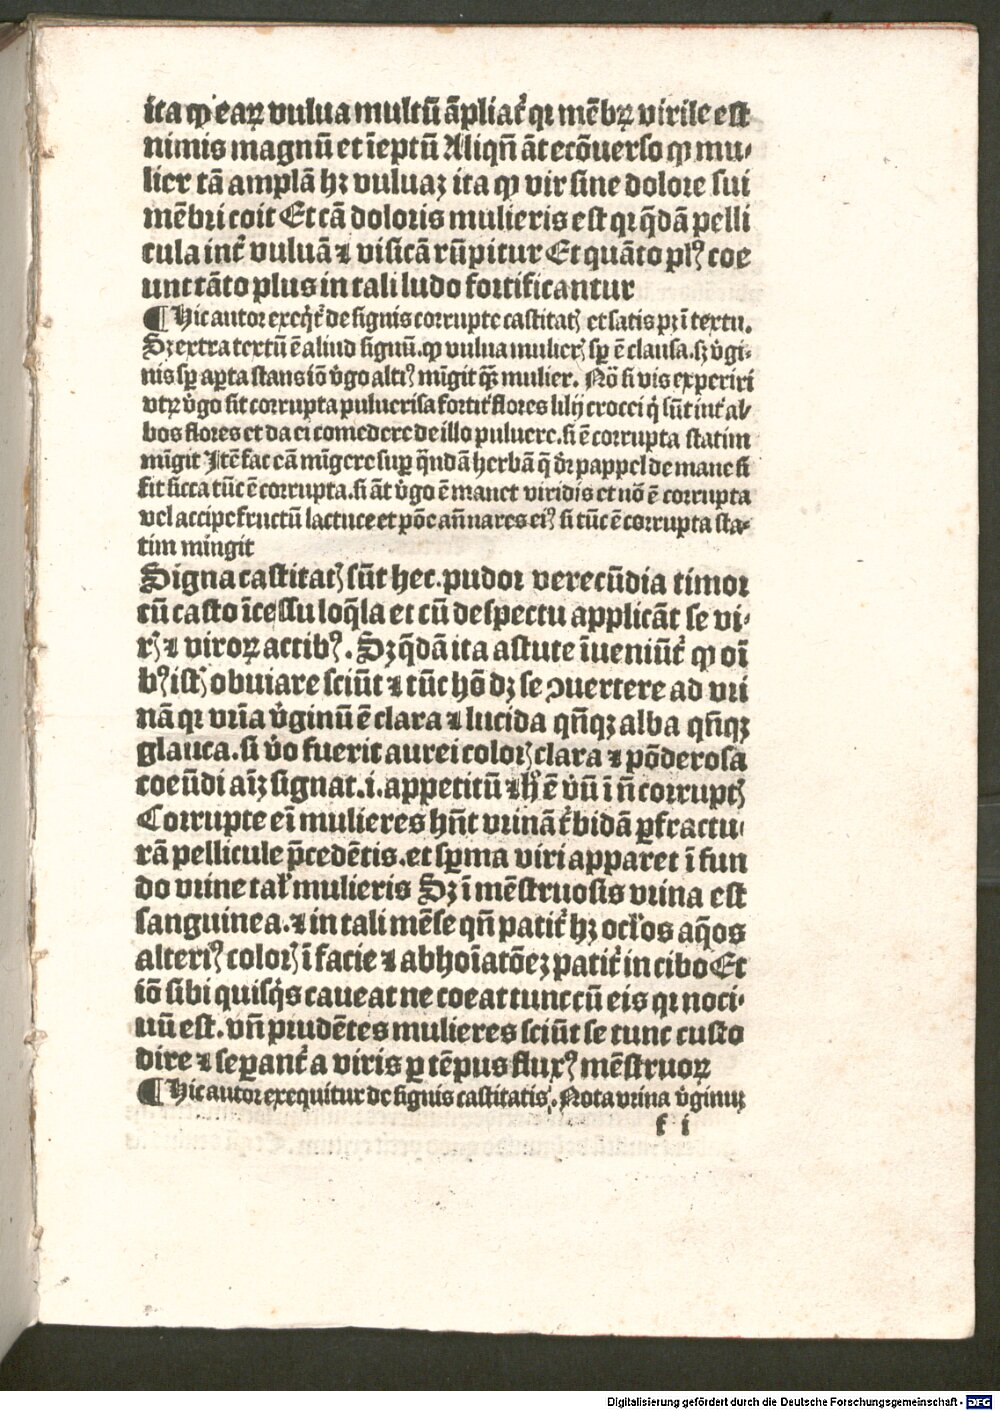 ita ꝙ eaꝝ vulua multū āpliat᷑ qꝛ mēbꝝ virile est
nimis magnū et īeptū Aliqn̄ āt ecōuerso ꝙ mu⸗
lier tā amplā hꝫ vuluaꝫ ita ꝙ vir sine dolore sui
mēbri coit Et cā doloris mulieris est qꝛ q̄dā pelli
cula int᷑ vuluā ⁊ visicā rūpitur Et quāto plꝰ coe
unt tāto plus in tali ludo fortificantur
¶ Hic autor exeq̇t᷑ de signis corrupte castitatꝭ et satis pꝫ ī textu.
Sꝫ extra textū ē aliud signū. ꝙ vulua mulierꝭ sꝑ ē clausa. sꝫ v̇gi⸗
nis sꝑ aꝑta stans iō v̇go altiꝰ mīgit qꝫ mulier. Nō si vis experiri
vtꝝ v̇go sit corrupta puluerisa fortit᷑ flores lilij crocei q̇ sūt int᷑ al⸗
bos flores et da ei comedere de illo puluere. si ē corrupta statim
mīgit Itē fac eā mīgere suꝑ q̄ndā herbā q̄ dr̄ pappel de mane si
fit sicca tūc ē corrupta. si āt v̇go ē manet viridis et nō ē corrupta
vel accipe fructū lactuce et pōe an̄ nares eiꝰ si tūc ē corrupta sta⸗
tim mingit
Signa castitatꝭ sūt hec. pudor verecūdia timor
cū casto īcessu loq̄la et cū despectu applicāt se vi⸗
rꝭ ⁊ viroꝝ actibꝰ. Sꝫ q̄dā ita astute īueniūt᷑ ꝙ oī
bꝰ istꝭ obuiare sciūt ⁊ tūc hō dꝫ se ꝯuertere ad vri
nā qꝛ vrīa v̇ginū ē clara ⁊ lucida qn̄qꝫ alba qn̄qꝫ
glauca. si v̇o fuerit aurei colorꝭ clara ⁊ pōderosa
coeūdi aīꝫ signat. i. appetitū ⁊ hꝰ ē v̇ū ī n̄ corruptꝭ
Corrupte eī mulieres hn̄t vrinā t᷑bidā ꝑ fractu⸗
rā pellicule p̄cedētis. et sꝑma viri apparet ī fun
do vrine talꝭ mulieris Sꝫ ī mēstruosis vrina est
sanguinea. ⁊ in tali mēse qn̄ patit᷑ hꝫ oclos aq̄os
alteriꝰ colorꝭ ī facie ⁊ abhoīatōeꝫ patit᷑ in cibo Et
iō sibi quisq̇s caueat ne coeat tunc cū eis qꝛ noci⸗
uū est. vn̄ prudētes mulieres sciūt se tunc custo
dire ⁊ seꝑant᷑ a viris ꝑ tēpus fluxꝰ mēstruoꝝ
¶ Hic autor exequitur de signis castitatis. Nota vrina v̇ginuꝫ
f i
Digitalisierung gefördert durch die Deutsche Forschungsgemeinschaft - DFG